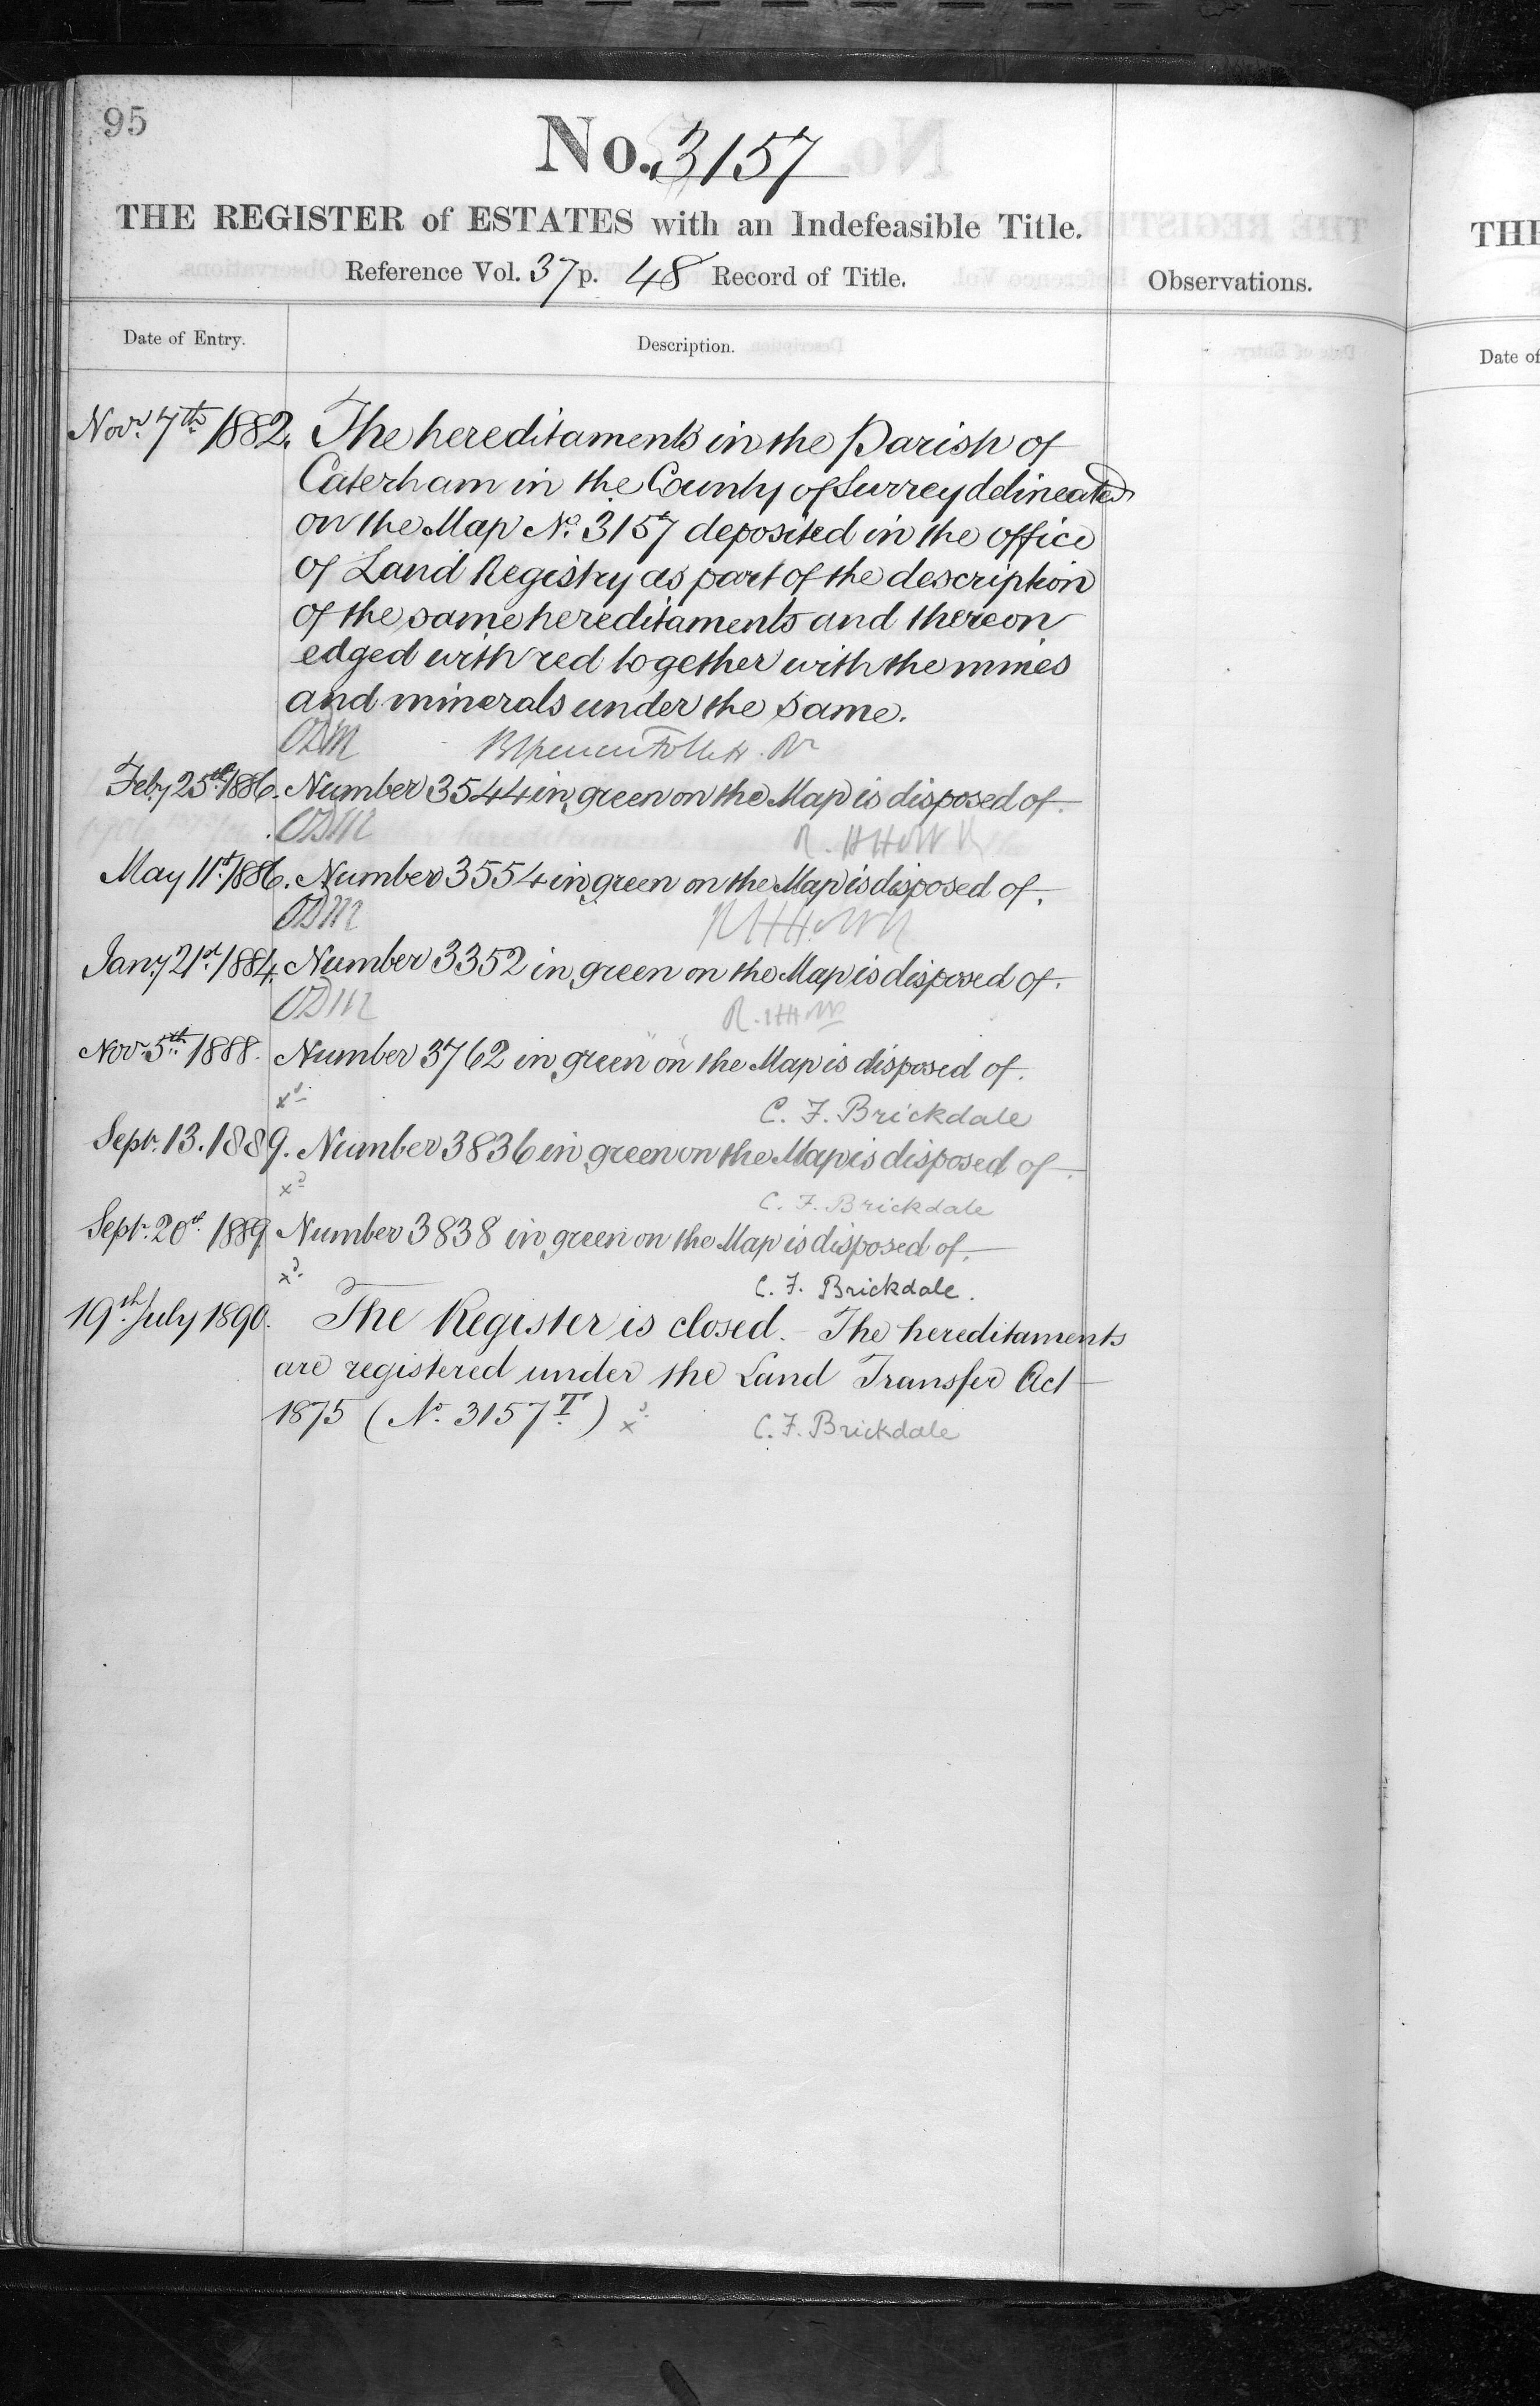 95
No. 3157
THE REGISTER of ESTATES with an Indefeasible Title.
Reference Vol. 37 p. 48 Record of Title.
Observations.
Date of Entry.
Description.
Novr. 7th. 1882. The hereditaments in the Parish of
Caterham in the County of Surrey delineated
on the Map No. 3157 deposited in the office
of Land Registry as part of the description
of the same hereditaments and thereon
edged with red together with the mines
and minerals under the same.
ODM
Feby 25th. 1886. Number 3544 in green on the Map is disposed of.
ODM
May 11th. 1886. Number 3554 in green on the Map is disposed of.
ODM
Jany 21st. 1884. Number 3352 in green on the Map is disposed of.
ODM
Nov. 5th. 1888. Number 3762 in green on the Map is disposed of.
C. F. Brickdale
Sepr. 13. 1889. Number 3836 in green on the Map is disposed of.
C. F. Brickdale
Sepr. 20th. 1889 Number 3838 in green on the Map is disposed of.
C. F. Brickdale.
19th. July 1890. The Register is closed. - The hereditaments
are registered under the Land Transfer Act
1875 (No. 3157 T.) C. F. Brickdale
THE
Date of